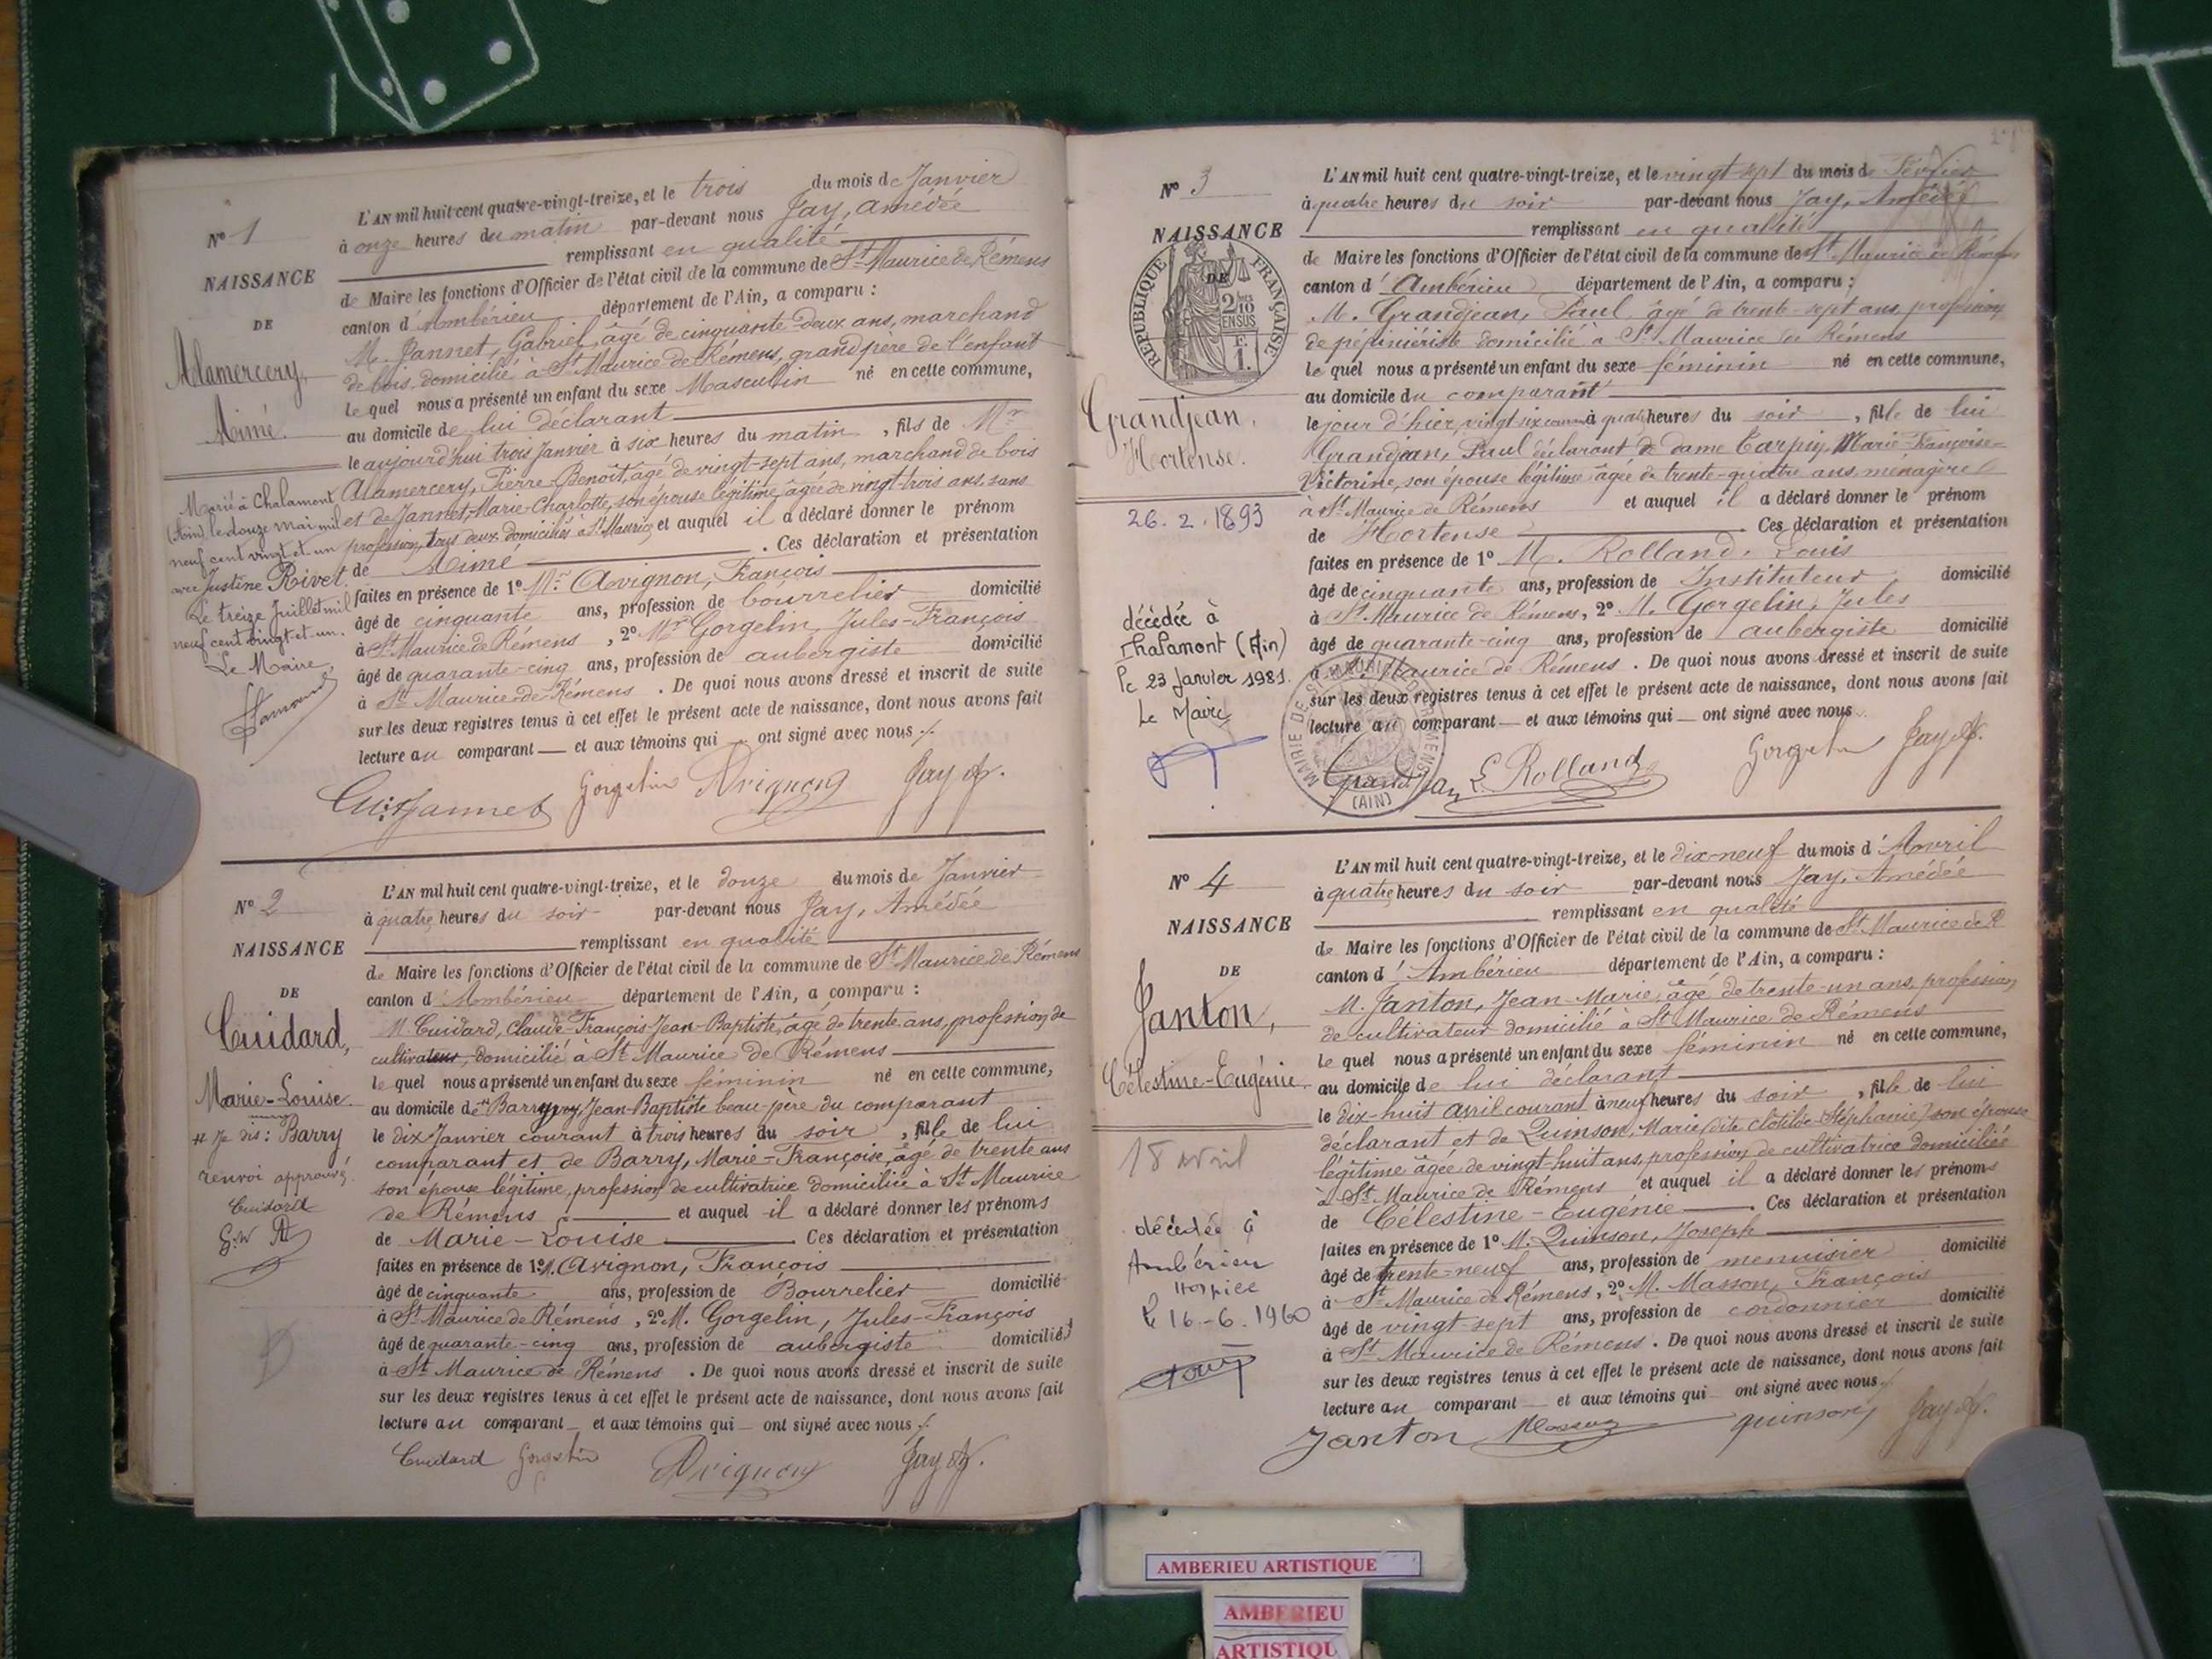 N° 1
NAISSANCE
DE
Alamercery,
Aimé.
Marié à Chalamont
(Ain) le douze mai mil
neuf cent vingt et un
avec Justine Rivet.
Le treize Juillet mil
neuf cent vingt et un.
Le Maire,
L'AN mil huit cent quatre-vingt-treize, et le trois du mois de Janvier
à onze heures du matin par-devant nous Jay, Amédée
remplissant en qualité
de Maire les fonctions d'Officier de l'état civil de la commune de St Maurice de Rémens
canton d'Ambérieu département de l'Ain, a comparu :
M. Jannet, Gabriel, âgé de cinquante-deux ans, marchand
de bois, domicilié à St Maurice de Rémens, grand père de l'enfant
lequel nous a présenté un enfant du sexe Masculin né en cette commune,
au domicile de lui déclarant
le aujourd'hui trois Janvier à six heures du matin, fils de Mr
Alamercery, Pierre-Benoît, âgé de vingt-sept ans, marchand de bois
et de Jannet, Marie-Charlotte, son épouse légitime, âgée de vingt-trois ans, sans
profession, tous deux domiciliés à St Maurice et auquel il a déclaré donner le prénom
de Aimé . Ces déclaration et présentation
faites en présence de 1° Mr Avignon, François
âgé de cinquante ans, profession de bourrelier domicilié
à St Maurice de Rémens, 2° Mr Gorgelin, Jules-François
âgé de quarante-cinq ans, profession de aubergiste domicilié
à St Maurice de Rémens. De quoi nous avons dressé et inscrit de suite
sur les deux registres tenus à cet effet le présent acte de naissance, dont nous avons fait
lecture au comparant — et aux témoins qui — ont signé avec nous
Jannet Gorgelin Avignon Jay A.
N° 2
NAISSANCE
DE
Cuidard,
Marie-Louise.
# Je dis : Barry
renvoi approuvé
Cuidard
L'AN mil huit cent quatre-vingt-treize, et le douze du mois de Janvier
à quatre heures du soir par-devant nous Jay, Amédée
remplissant en qualité
de Maire les fonctions d'Officier de l'état civil de la commune de St Maurice de Rémens
canton d'Ambérieu département de l'Ain, a comparu :
M. Cuidard, Claude-François-Jean-Baptiste, âgé de trente ans, profession de
cultivateur, domicilié à St Maurice de Rémens
lequel nous a présenté un enfant du sexe féminin né en cette commune,
au domicile de Jean-Baptiste beau-père du comparant
le dix Janvier courant à trois heures du soir, fille de lui
comparant et de Barry, Marie-Françoise, âgé de trente ans
son épouse légitime, profession de cultivatrice domiciliée à St Maurice
de Rémens et auquel il a déclaré donner les prénoms
de Marie-Louise . Ces déclaration et présentation
faites en présence de 1° M. Avignon, François
âgé de cinquante ans, profession de Bourrelier domicilié
à St Maurice de Rémens, 2° M. Gorgelin, Jules-François
âgé de quarante-cinq ans, profession de aubergiste domicilié
à St Maurice de Rémens. De quoi nous avons dressé et inscrit de suite
sur les deux registres tenus à cet effet le présent acte de naissance, dont nous avons fait
lecture au comparant — et aux témoins qui — ont signé avec nous
Cuidard Gorgelin Avignon Jay A.
N° 3
NAISSANCE
DE
RÉPUBLIQUE FRANÇAISE
2/10 EN SUS
F. 1.
Grandjean,
Hortense.
26.2.1893
décédée à
Chalamont (Ain)
le 23 Janvier 1981.
Le Maire
L'AN mil huit cent quatre-vingt-treize, et le vingt-sept du mois de Février
à quatre heures du soir par-devant nous Jay, Amédée
remplissant en qualité
de Maire les fonctions d'Officier de l'état civil de la commune de St Maurice de Rémens
canton d'Ambérieu département de l'Ain, a comparu :
M. Grandjean, Paul, âgé de trente-sept ans, profession
de pépiniériste domicilié à St Maurice de Rémens
lequel nous a présenté un enfant du sexe féminin né en cette commune,
au domicile du comparant
le jour d'hier, vingt six courant à quatre heures du soir, fille de lui
Grandjean, Paul déclarant & de dame Carpin, Marie-Françoise-
Victorine, son épouse légitime âgée de trente-quatre ans, ménagère
à St Maurice de Rémens et auquel il a déclaré donner le prénom
de Hortense . Ces déclaration et présentation
faites en présence de 1° M. Rolland, Louis
âgé de cinquante ans, profession de Instituteur, domicilié
à St Maurice de Rémens, 2° M. Gorgelin, Jules
âgé de quarante-cinq ans, profession de aubergiste domicilié
à St Maurice de Rémens. De quoi nous avons dressé et inscrit de suite
sur les deux registres tenus à cet effet le présent acte de naissance, dont nous avons fait
lecture au comparant — et aux témoins qui — ont signé avec nous
MAIRIE DE ST MAURICE DE RÉMENS (AIN)
Grandjean L. Rolland Gorgelin Jay A.
N° 4
NAISSANCE
DE
Janton,
Célestine-Eugénie.
18 avril
décédée à
Ambérieu
Hospice
le 16-6.1960
L'AN mil huit cent quatre-vingt-treize, et le dix-neuf du mois d'Avril
à quatre heures du soir par-devant nous Jay, Amédée
remplissant en qualité
de Maire les fonctions d'Officier de l'état civil de la commune de St Maurice de R
canton d'Ambérieu département de l'Ain, a comparu :
M. Janton, Jean-Marie, âgé de trente-un ans, profession
de cultivateur domicilié à St Maurice de Rémens
lequel nous a présenté un enfant du sexe féminin né en cette commune,
au domicile de lui déclarant
le dix-huit avril courant à neuf heures du soir, fille de lui
déclarant et de Quinson, Marie (dite Clotilde-Stéphanie) son épouse
légitime âgée de vingt-huit ans, profession de cultivatrice domiciliée
à St Maurice de Rémens et auquel il a déclaré donner les prénoms
de Célestine-Eugénie . Ces déclaration et présentation
faites en présence de 1° M. Quinson, Joseph
âgé de trente-neuf ans, profession de menuisier domicilié
à St Maurice de Rémens, 2° M. Masson, François
âgé de vingt-sept ans, profession de cordonnier domicilié
à St Maurice de Rémens. De quoi nous avons dressé et inscrit de suite
sur les deux registres tenus à cet effet le présent acte de naissance, dont nous avons fait
lecture au comparant — et aux témoins qui — ont signé avec nous
Janton Masson quinson Jay A.
AMBERIEU ARTISTIQUE
AMBERIEU
ARTISTIQU